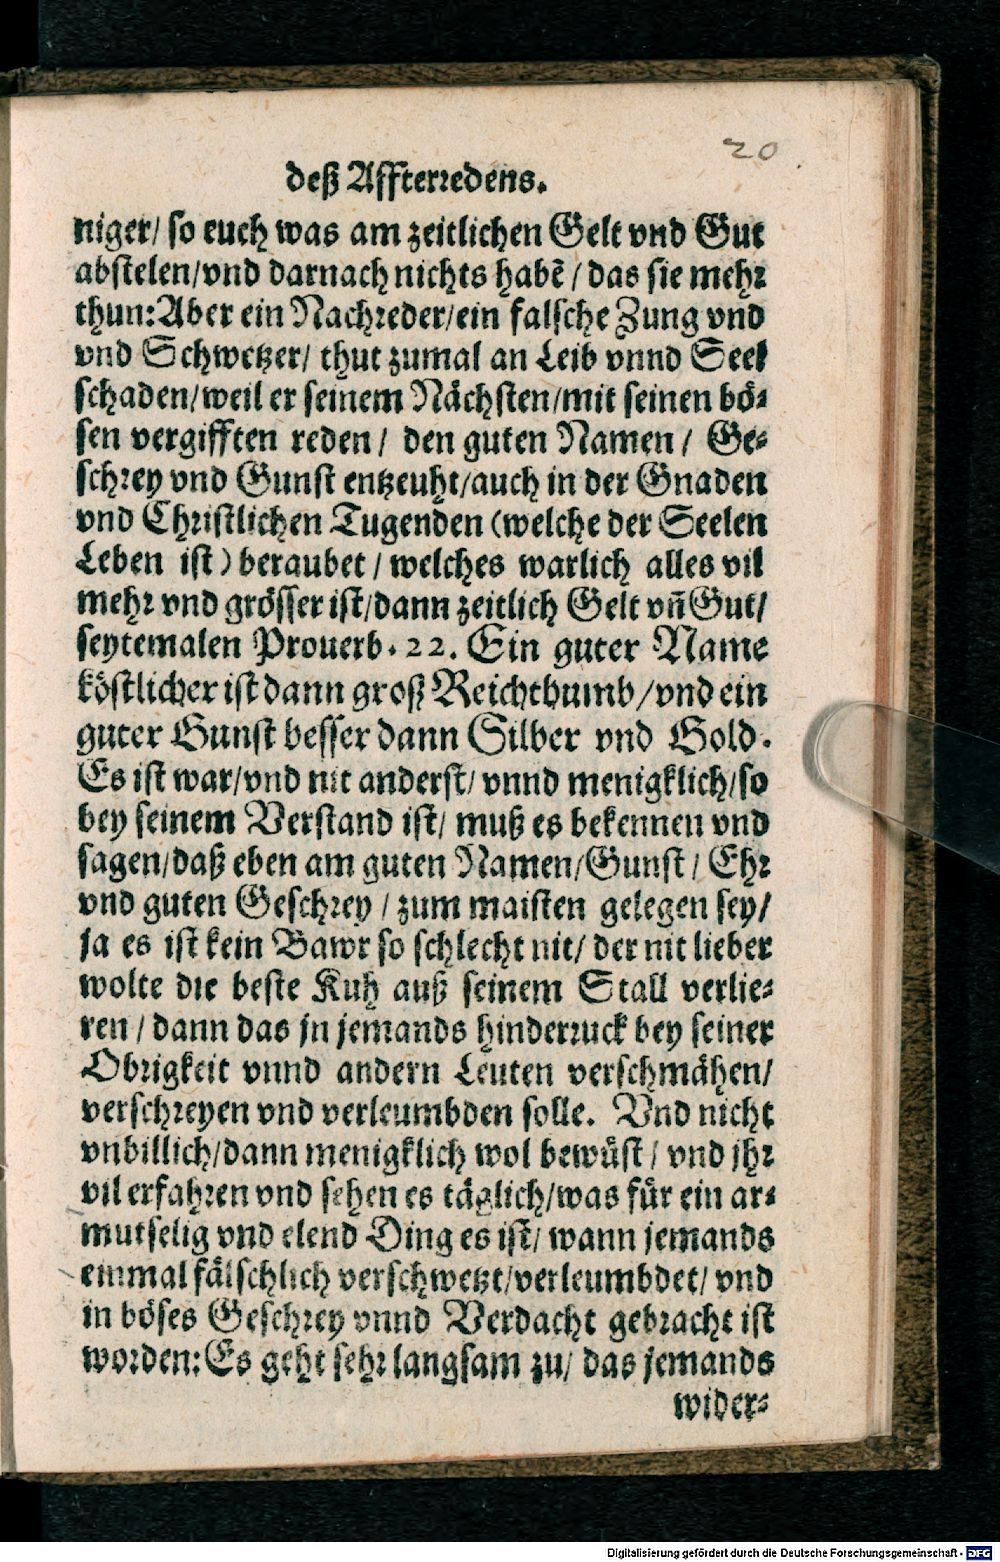 20
deß Affterredens.
niger/ so euch was am zeitlichen Gelt vnd Gut
abstelen/vnd darnach nichts habẽ / das sie mehr
thun: Aber ein Nachreder/ein falsche Zung vnd
vnd Schwetzer/ thut zumal an Leib vnnd Seel
schaden/weil er seinem Nächsten/mit seinen bö⸗
sen vergifften reden / den guten Namen / Ge⸗
schrey vnd Gunst entzeuht/auch in der Gnaden
vnd Christlichen Tugenden (welche der Seelen
Leben ist) beraubet / welches warlich alles vil
mehr vnd grösser ist/dann zeitlich Gelt vñ Gut/
seytemalen Prouerb. 22. Ein guter Name
köstlicher ist dann groß Reichthumb/vnd ein
guter Gunst besser dann Silber vnd Gold.
Es ist war/vnd nit anderst/ vnnd menigklich/so
bey seinem Verstand ist/ muß es bekennen vnd
sagen/daß eben am guten Namen/Gunst / Ehr
vnd guten Geschrey / zum maisten gelegen sey/
ja es ist kein Bawr so schlecht nit/ der nit lieber
wolte die beste Kuh auß seinem Stall verlie⸗
ren / dann das jn jemands hinderruck bey seiner
Obrigkeit vnnd andern Leuten verschmähen/
verschreyen vnd verleumbden solle. Vnd nicht
vnbillich/dann menigklich wol bewüst / vnd jhr
vil erfahren vnd sehen es täglich/was für ein ar⸗
mutselig vnd elend Ding es ist/ wann jemands
einmal fälschlich verschwetzt/verleumbdet/ vnd
in böses Geschrey vnnd Verdacht gebracht ist
worden: Es geht sehr langsam zu/ das jemands
wider⸗
Digitalisierung gefördert durch die Deutsche Forschungsgemeinschaft - DFG